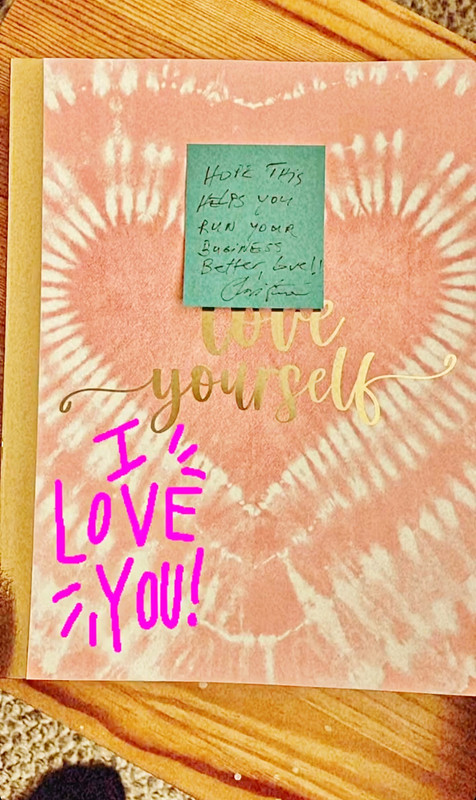 HOPE THIS
HELPS YOU
RUN YOUR
BUSINESS
Better, love!!
Christine
love
yourself
I
LOVE
YOU!